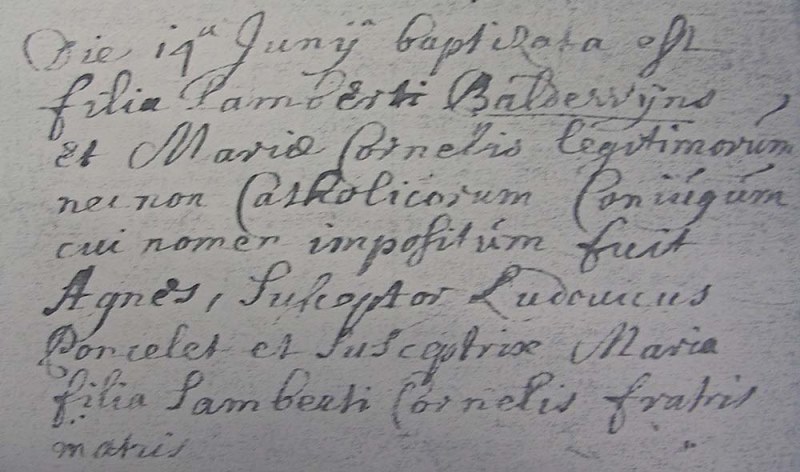 Die 14ª Junÿ baptizata est
filia Lamberti Balderwÿns
et Mariæ Cornelis legitimorúm
necnon Catholicorum Coniúgúm
cui nomen impositúm fuit
Agnes, Susceptor Ludovicus
Poncelet et Susceptrix Maria
filia Lamberti Cornelis fratris
matris